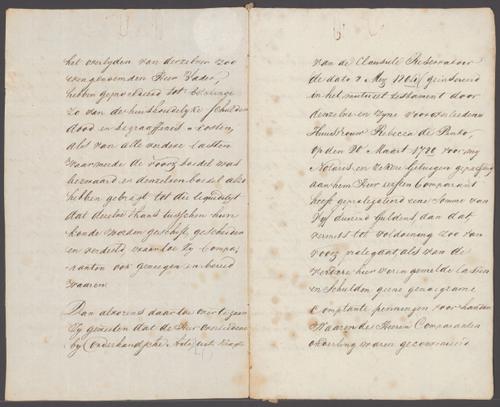 het overlyden van derzelver zoo
evengenoemden Heer Vader,
hebben geprocedeerd tot
zo van de huishoudelyke schulden
dood en begraaffenis kosten,
als van alle verdere lasten
waarmede de voorz boedel was
bezwaard en denzelven boedel alzo
hebben gebragt tot die liquiditeyt
dat dezelve thans tusschen hun
konde worden geschift, gescheiden
en verdeeld, waartoe zy Compa:
ranten ook genegen en bereid
waaren
Dan alvorens daar toe over te gaan
zy gemelden dat de Heer overledene
by (onderhandsche Acte) uit kragt
van de Clausule Reservatoir
de dato 7 May geinsereerd
in het mutueel testament door
denzelve en zyne vooroverledene
Huisvrouw Rebecca de Pinto,
op den 20 Maart voor my
Notaris en zekere getuigen gepasseerd
aan hem Heer eersten Comparant
heeft geprelegateerd eene Somme van
Vyf duizend guldens, dan dat
vermits tot voldoening zoo van
voorz prelegaat, als van de
verdere hier voren gemelde lasten
en Schulden geene genoegzame
Comptante penningen voorhanden
waaren de Heeren Comparanten
onderling waren geconvenieerd